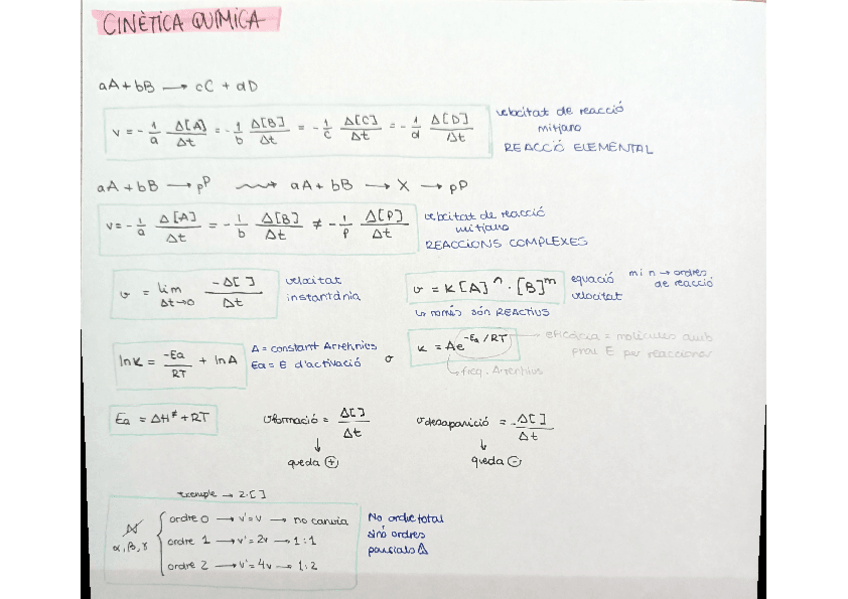 CINÈTICA QUÍMICA
aA + bB → cC + dD
v = - 1/a Δ[A]/Δt = - 1/b Δ[B]/Δt = - 1/c Δ[C]/Δt = - 1/d Δ[D]/Δt
velocitat de reacció
mitjana
REACCIÓ ELEMENTAL
aA + bB → pP ⇝ aA + bB → X → pP
v = - 1/a Δ[A]/Δt = - 1/b Δ[B]/Δt ≠ - 1/p Δ[P]/Δt
velocitat de reacció
mitjana
REACCIONS COMPLEXES
v = lim Δt→0 -Δ[ ]/Δt
velocitat
instantània
v = K[A]ⁿ · [B]ᵐ
equació
velocitat
m i n → ordres
de reacció
↳ només són REACTIUS
ln K = -Ea/RT + ln A
A = constant Arrhenius
Ea = E d'activació
o
K = Ae^(-Ea/RT)
eficàcia = molècules amb
prou E per reaccionar
freq. Arrhenius
Ea = ΔH≠ + RT
v formació = Δ[ ]/Δt
↓
queda ⊕
v desaparició = - Δ[ ]/Δt
↓
queda ⊖
exemple → 2·[ ]
α, β, γ
ordre 0 → v' = v → no canvia
ordre 1 → v' = 2v → 1:1
ordre 2 → v' = 4v → 1:2
No ordre total
sinó ordres
parcials